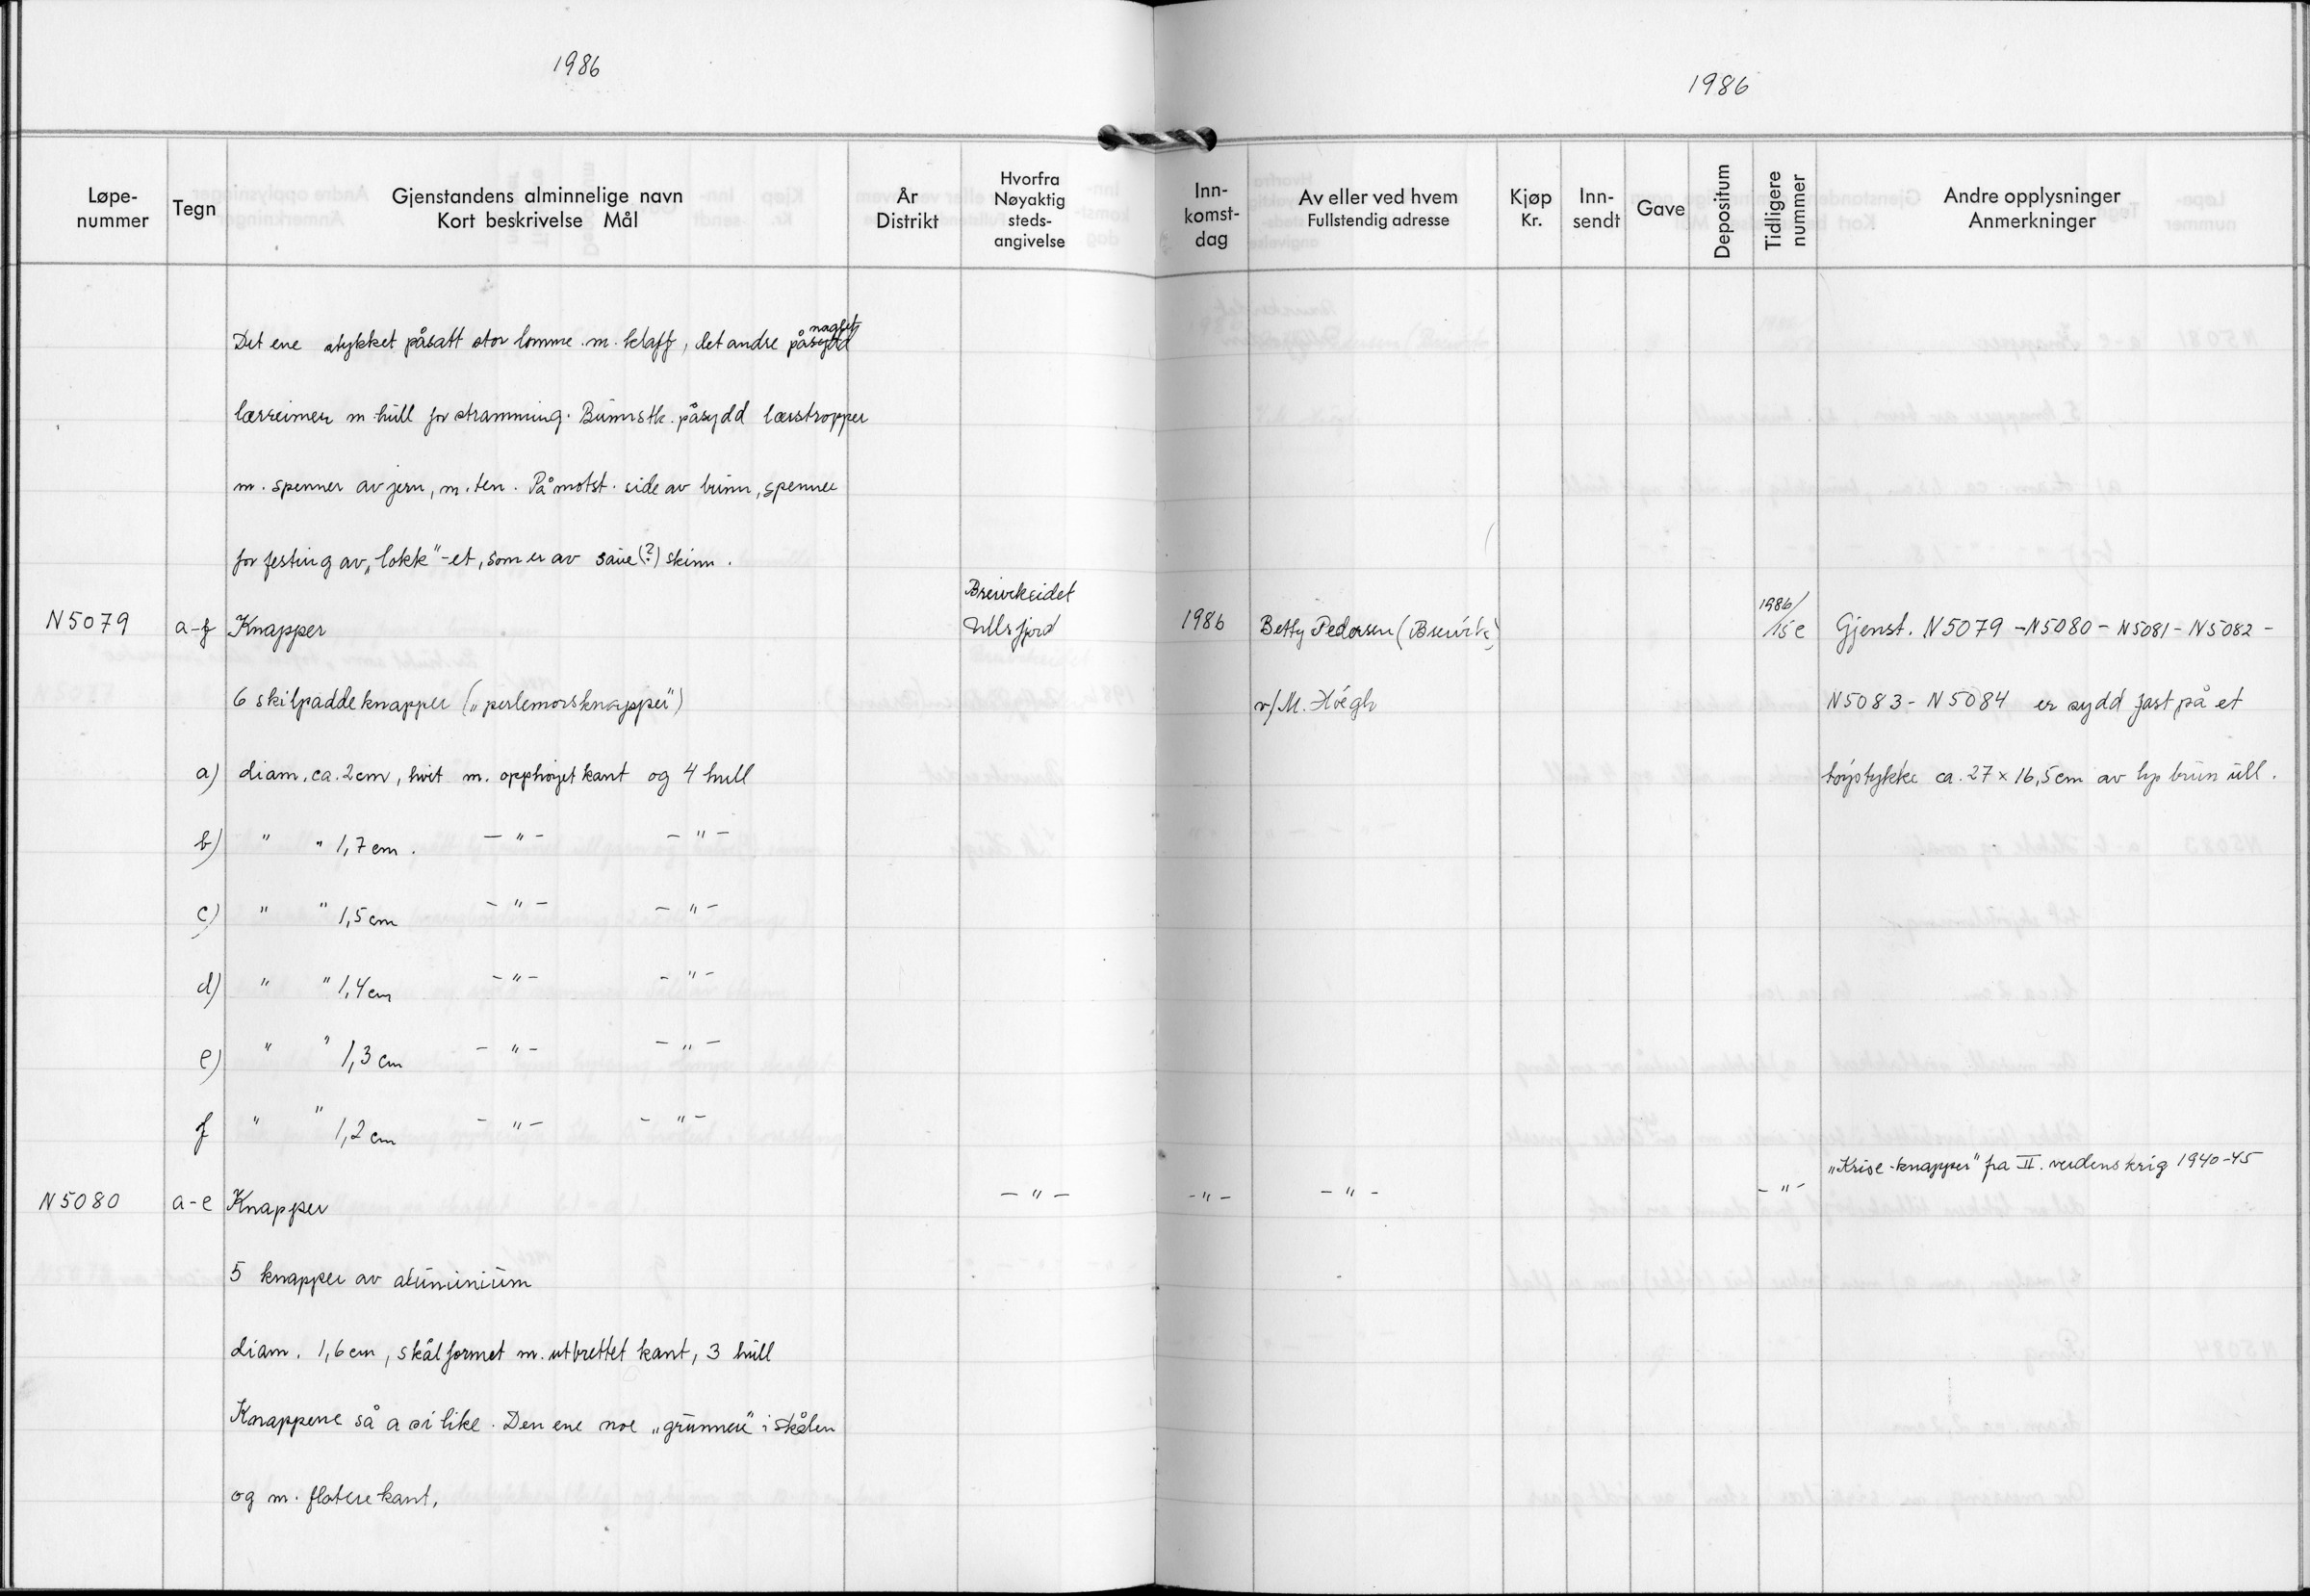 1986
1986
Løpe-nummer Tegn Gjenstandens alminnelige navn Kort beskrivelse Mål År Distrikt Hvorfra Nøyaktig steds-angivelse Inn-komst-dag Av eller ved hvem Fullstendig adresse Kjøp Kr. Inn-sendt Gave Depositum Tidligere nummer Andre opplysninger Anmerkninger
naglet
Det ene stykket påsatt stor lomme m. klaff, det andre påsydd
lærreimer m hull for stramming. Bunnstk. påsydd lærstropper
m. spenner av jern, m. ten. På motst. side av bunn, spenner
for festing av „lokk"-et, som er av saue(?) skinn.
Breivikeidet 1986/
N5079 a-f Knapper Ullsfjord 1986 Betty Pedersen (Breivik) 15e Gjenst. N5079 - N5080 - N5081 - N5082 -
6 skilpaddeknapper („perlemorsknapper") v/ M. Høegh N5083 - N5084 er sydd fast på et
a) diam. ca. 2cm, hvit m. opphøyet kant og 4 hull tøystykke ca. 27 x 16,5cm av lys brun ull.
b) " " 1,7 cm. - " - - " -
c) " " 1,5 cm - " - - " -
d) " " 1,4 cm - " - - " -
e) " " 1,3 cm - " - - " -
f " " 1,2 cm - " - - " -
„Krise-knapper" fra II. verdenskrig 1940-45
N5080 a-e Knapper - " - - " - - " - - " -
5 knapper av aluminium
diam. 1,6 cm, skålformet m. utbrettet kant, 3 hull
Knappene så a si like. Den ene noe „grunnere" i skålen
og m. flatere kant,